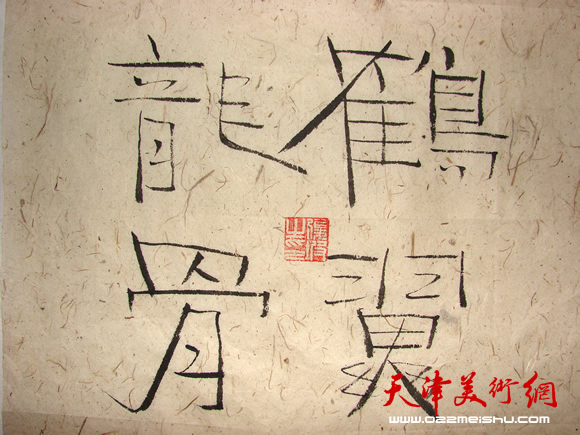 鶴翼
龍骨
天津美術網
www.022meishu.com